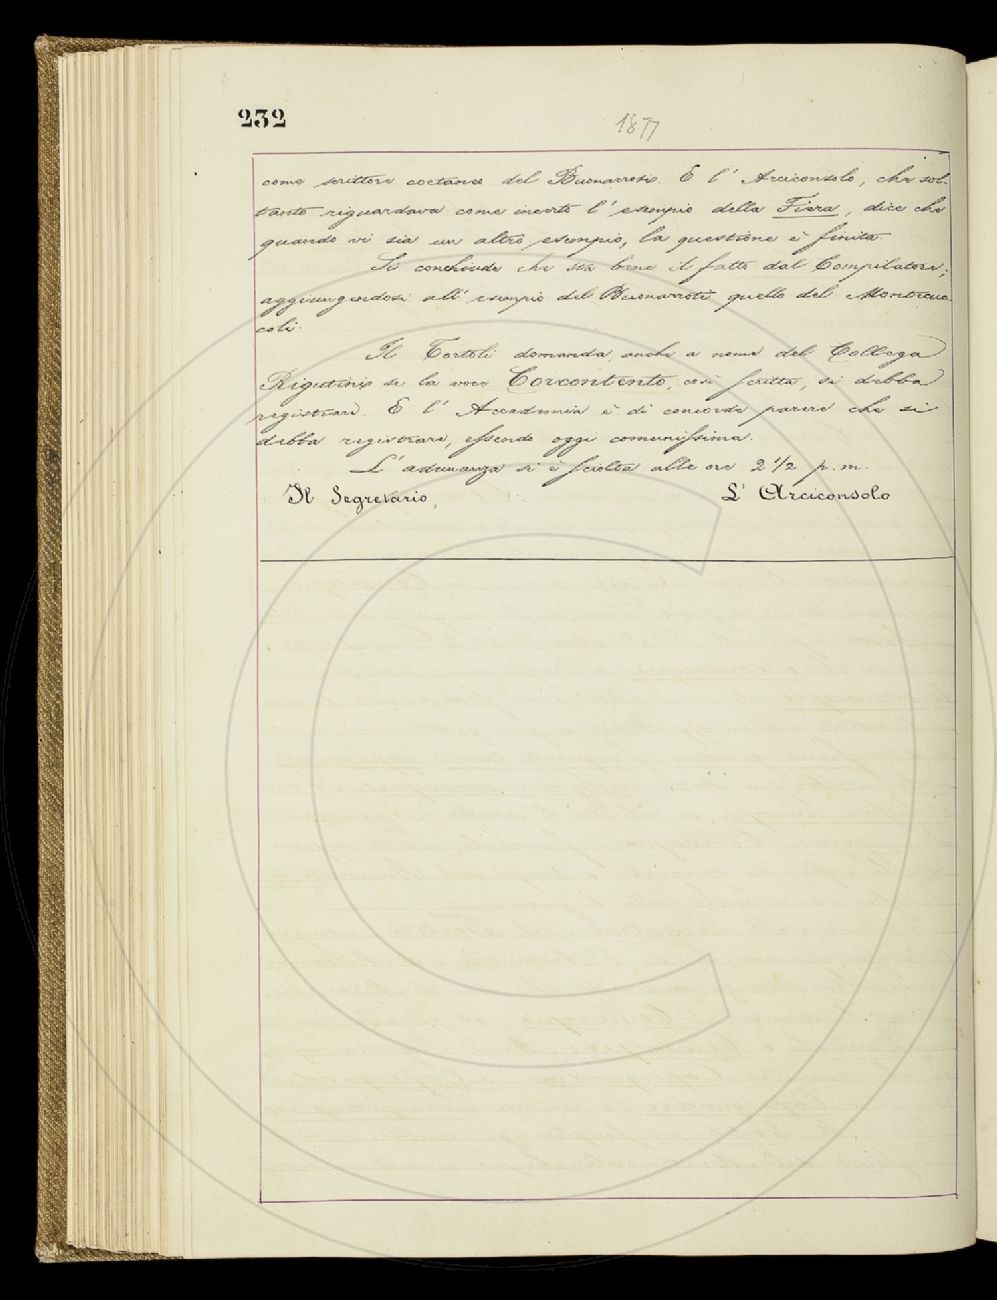 232
1877
come scrittore coetaneo del Buonarroti. E l'Arciconsolo, che sol-
tanto riguardava come incerto l'esempio della Fiera, dice che
quando vi sia un altro esempio, la questione è finita.
Si conchiude che sta bene il fatto dal Compilatore;
aggiungendosi all'esempio del Buonarroti quello del Montecuc-
coli.
Il Tortoli domanda, anche a nome del Collega
Rigutini, se la voce Corcontento, così scritta, si debba
registrare. E l'Accademia è di concorde parere che si
debba registrare, essendo oggi comunissima.
L'adunanza si è sciolta alle ore 2 1/2 p. m.
Il Segretario
L'Arciconsolo